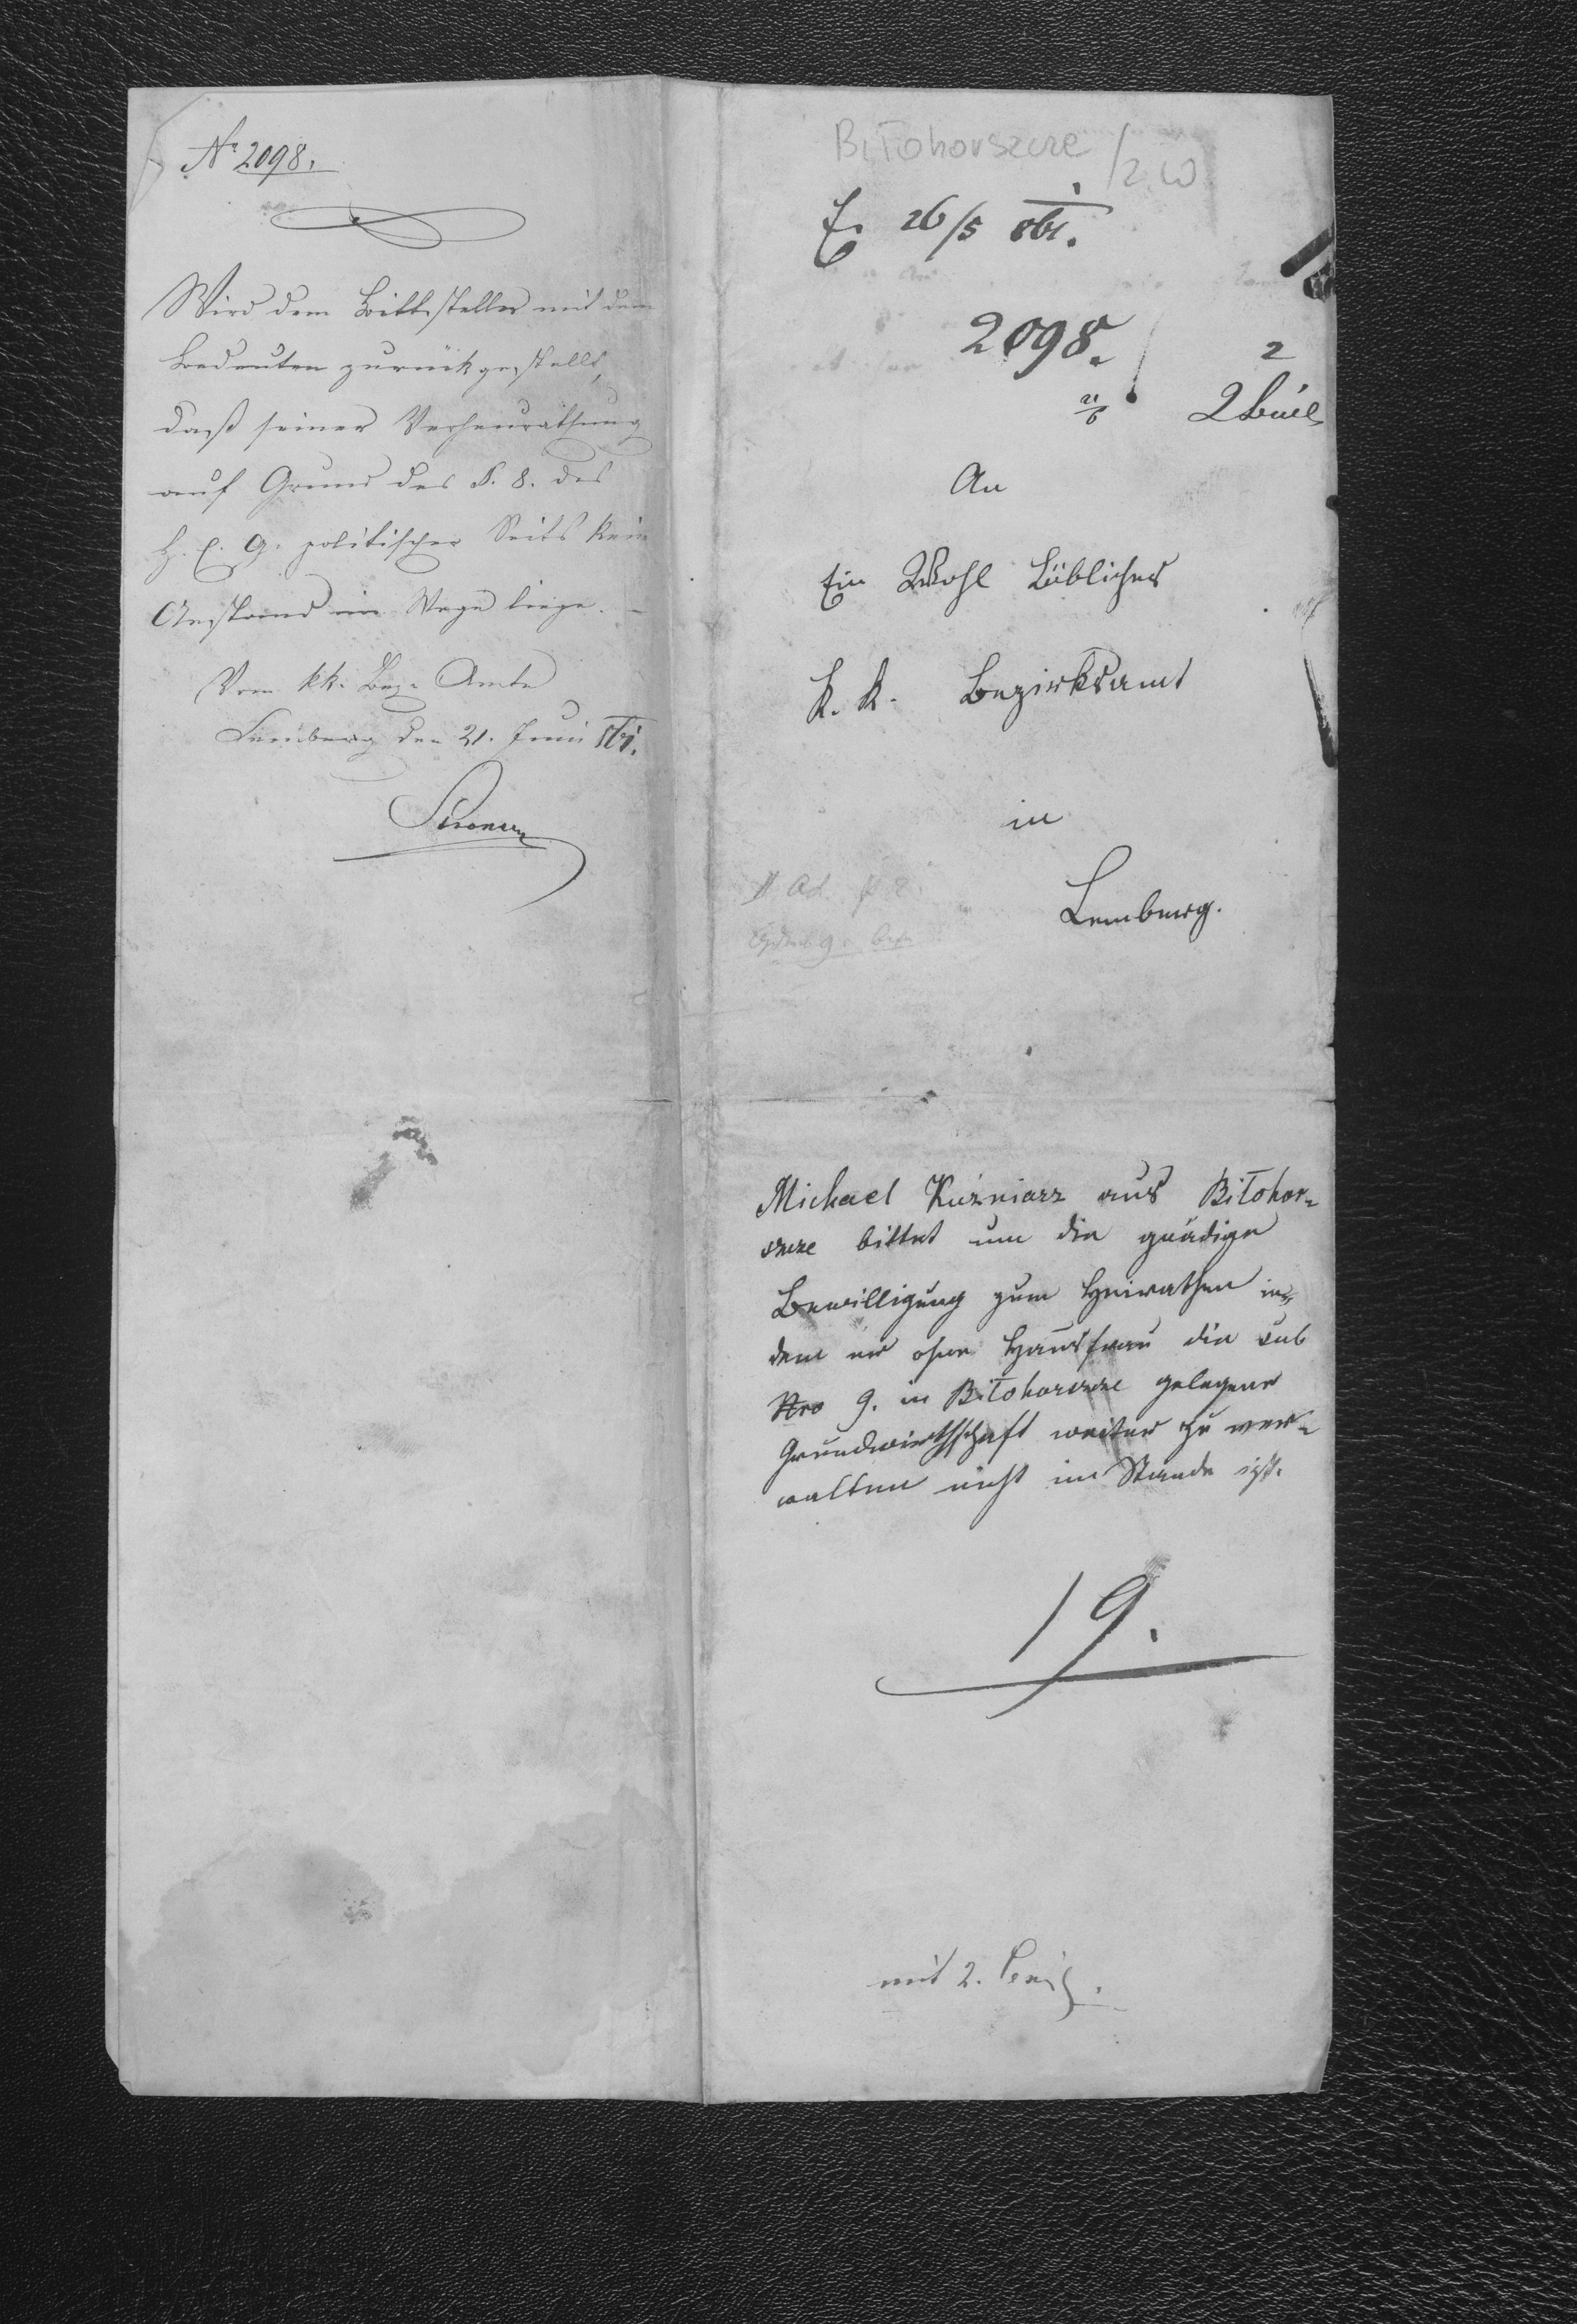 Nr 2098.
Wird dem Bittsteller mit dem
Bedeuten zurückgestellt,
daß seiner Verheurathung
auf Grund des §. 8. des
H. E. G. politischer Seits kein
Anstand im Wege liege. –
Vom kk. Bez= Amte
Lemberg den 21. Juni 861.
Biłohorszcze
/2 W
E. 26/5 861.
2098.
2
21/6
2 Beil
An
Ein Wohl Löbliches
K. K. Bezirksamt
in
Lemberg.
Ad. § 8.
Michael Kuźniarz aus Biłohor=
szcze bittet um die gnädige
Bewilligung zum Heirathen in=
dem er ohne Hausfrau die sub
Nro 9. in Biłohorszcze gelegene
Grundwirthschaft weiter zu ver=
walten nicht im Stande ist.
19.
mit 2.